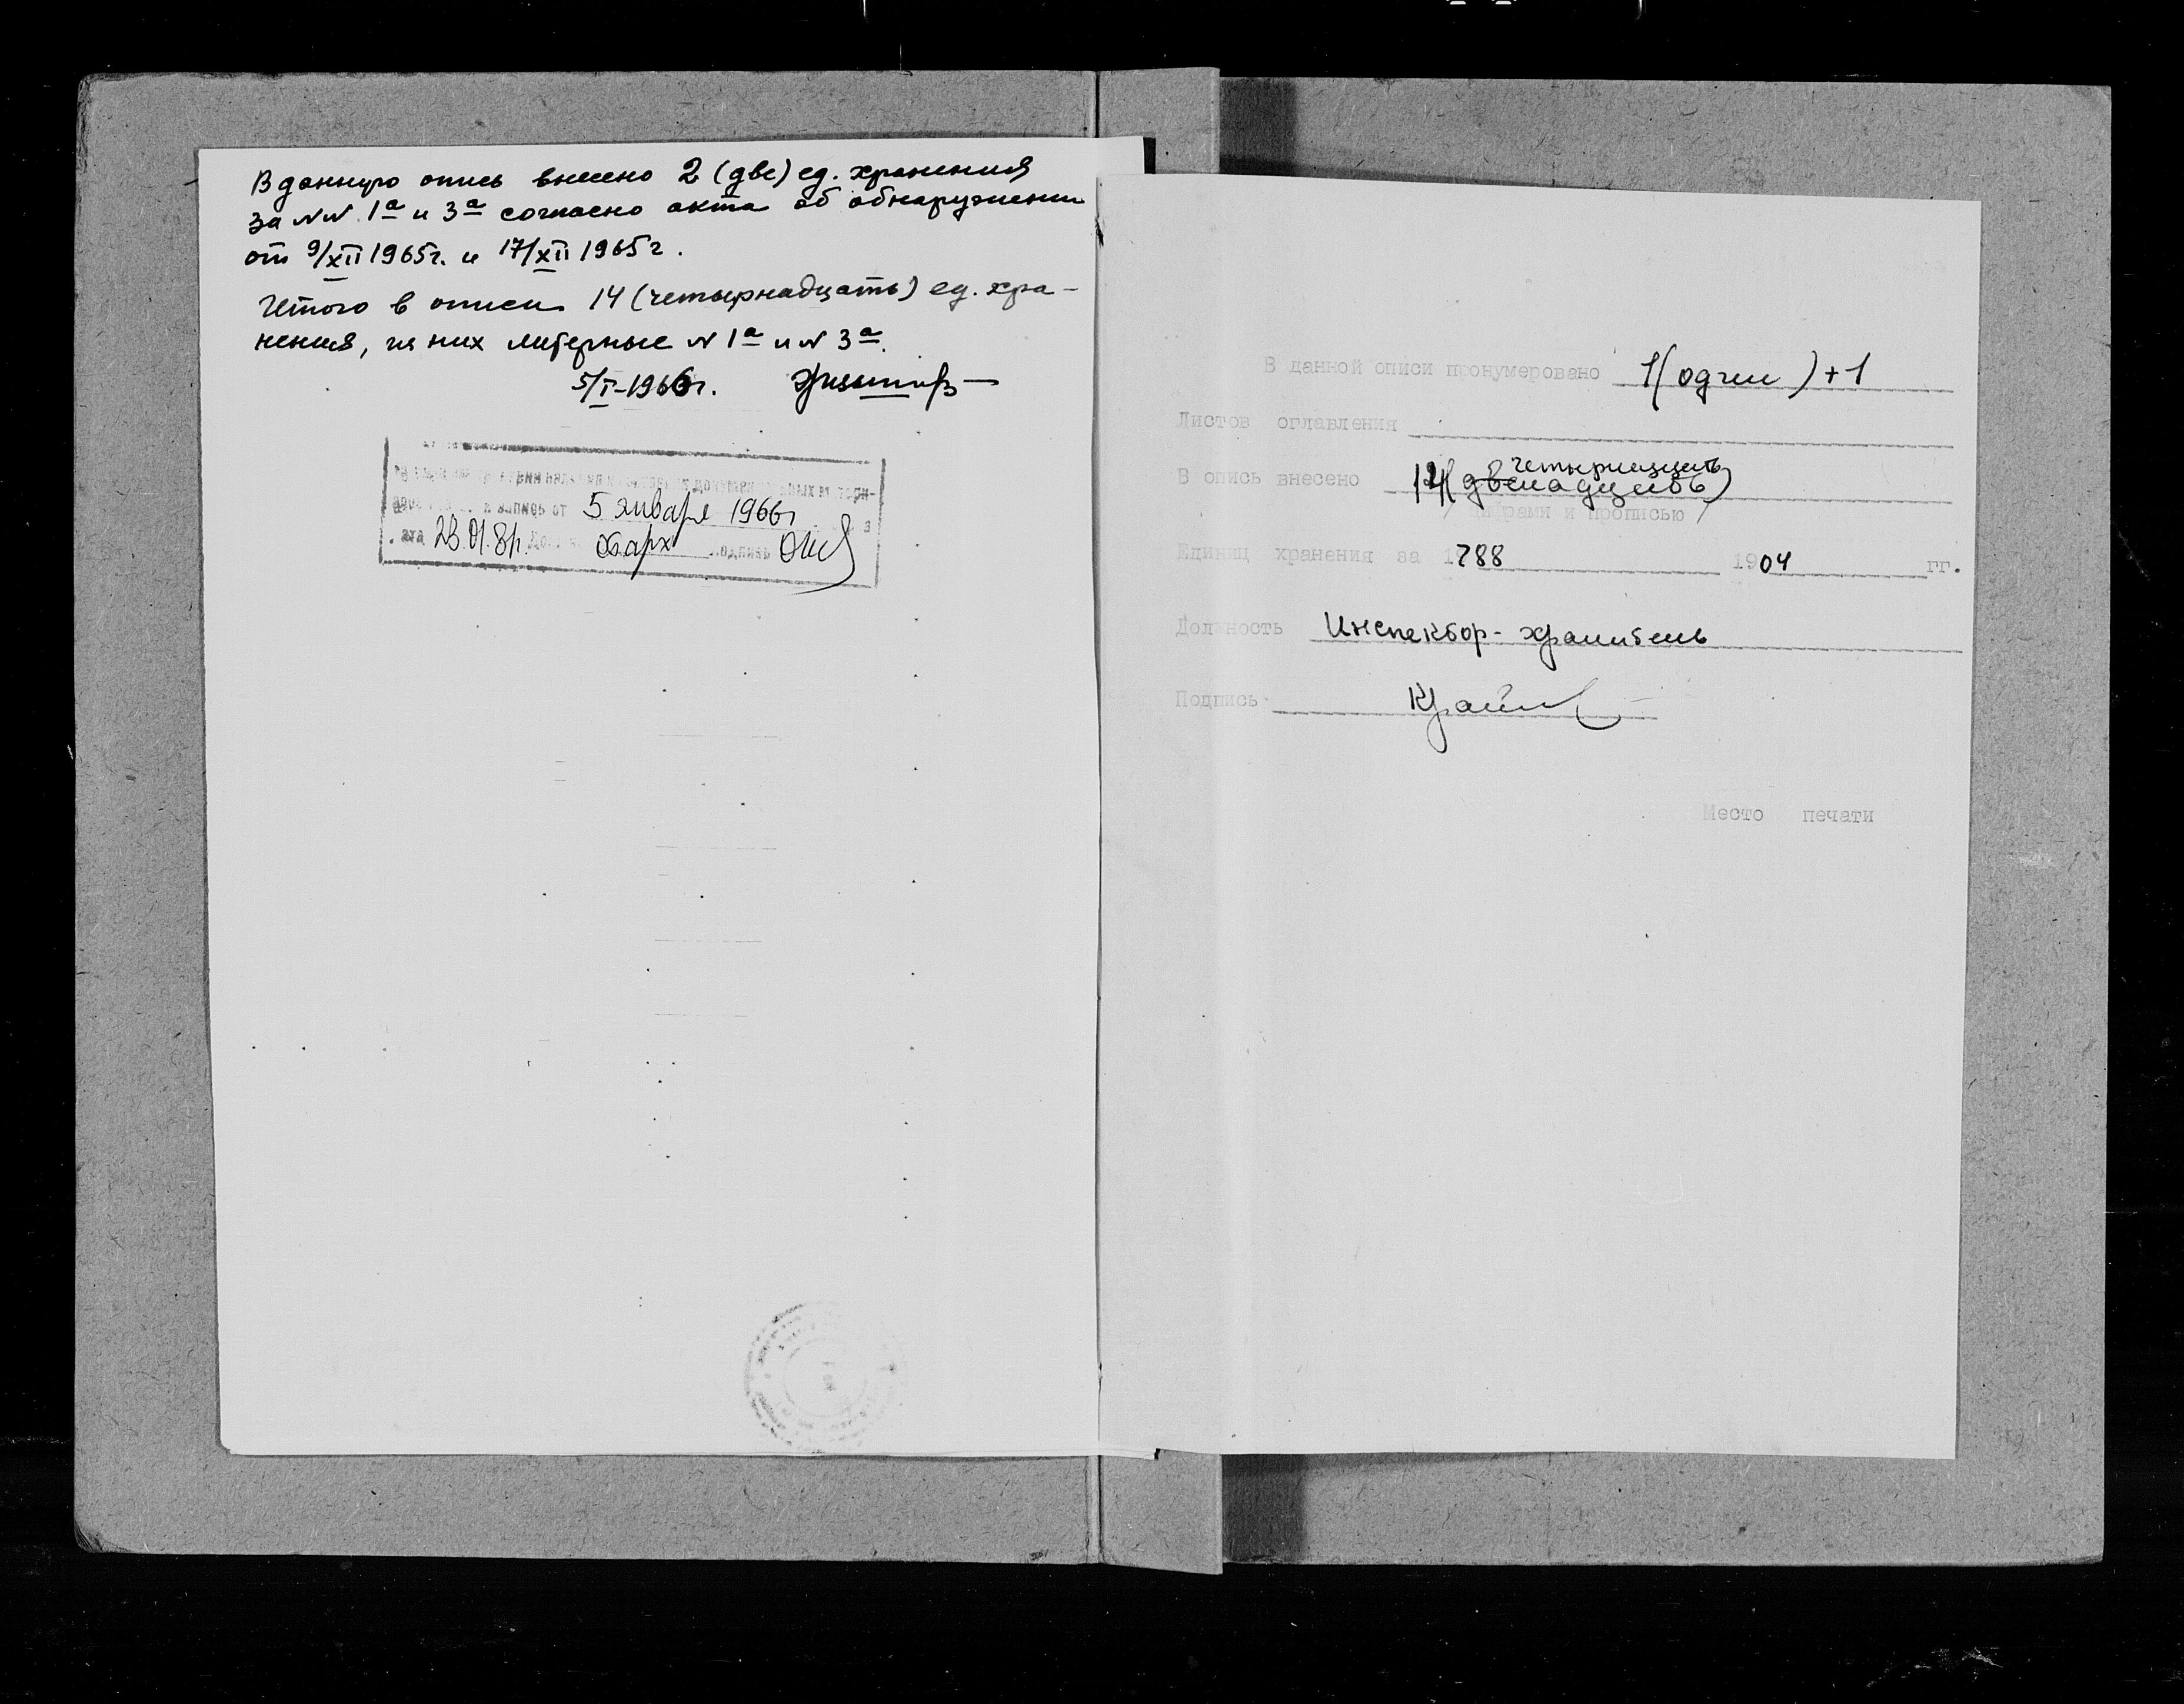 В данную опись внесено 2 (две) ед. хранения
за №№ 1а и 3а согласно акта об обнаружении
от 9/XII 1965г. и 17/XII 1965г.
Итого в описи 14 (четырнадцать) ед. хра-
нения, из них литерные № 1а и № 3а.
5/I-1966г.
запись от 5 января 1966г
23.01.81г.
В данной описи пронумеровано 1 (один) +1
Листов оглавления
четырнадцать
В опись внесено 14 (двенадцать)
/ цифрами и прописью /
Единиц хранения за 1788 1904 гг.
Должность Инспектор-хранитель
Подпись
Место печати